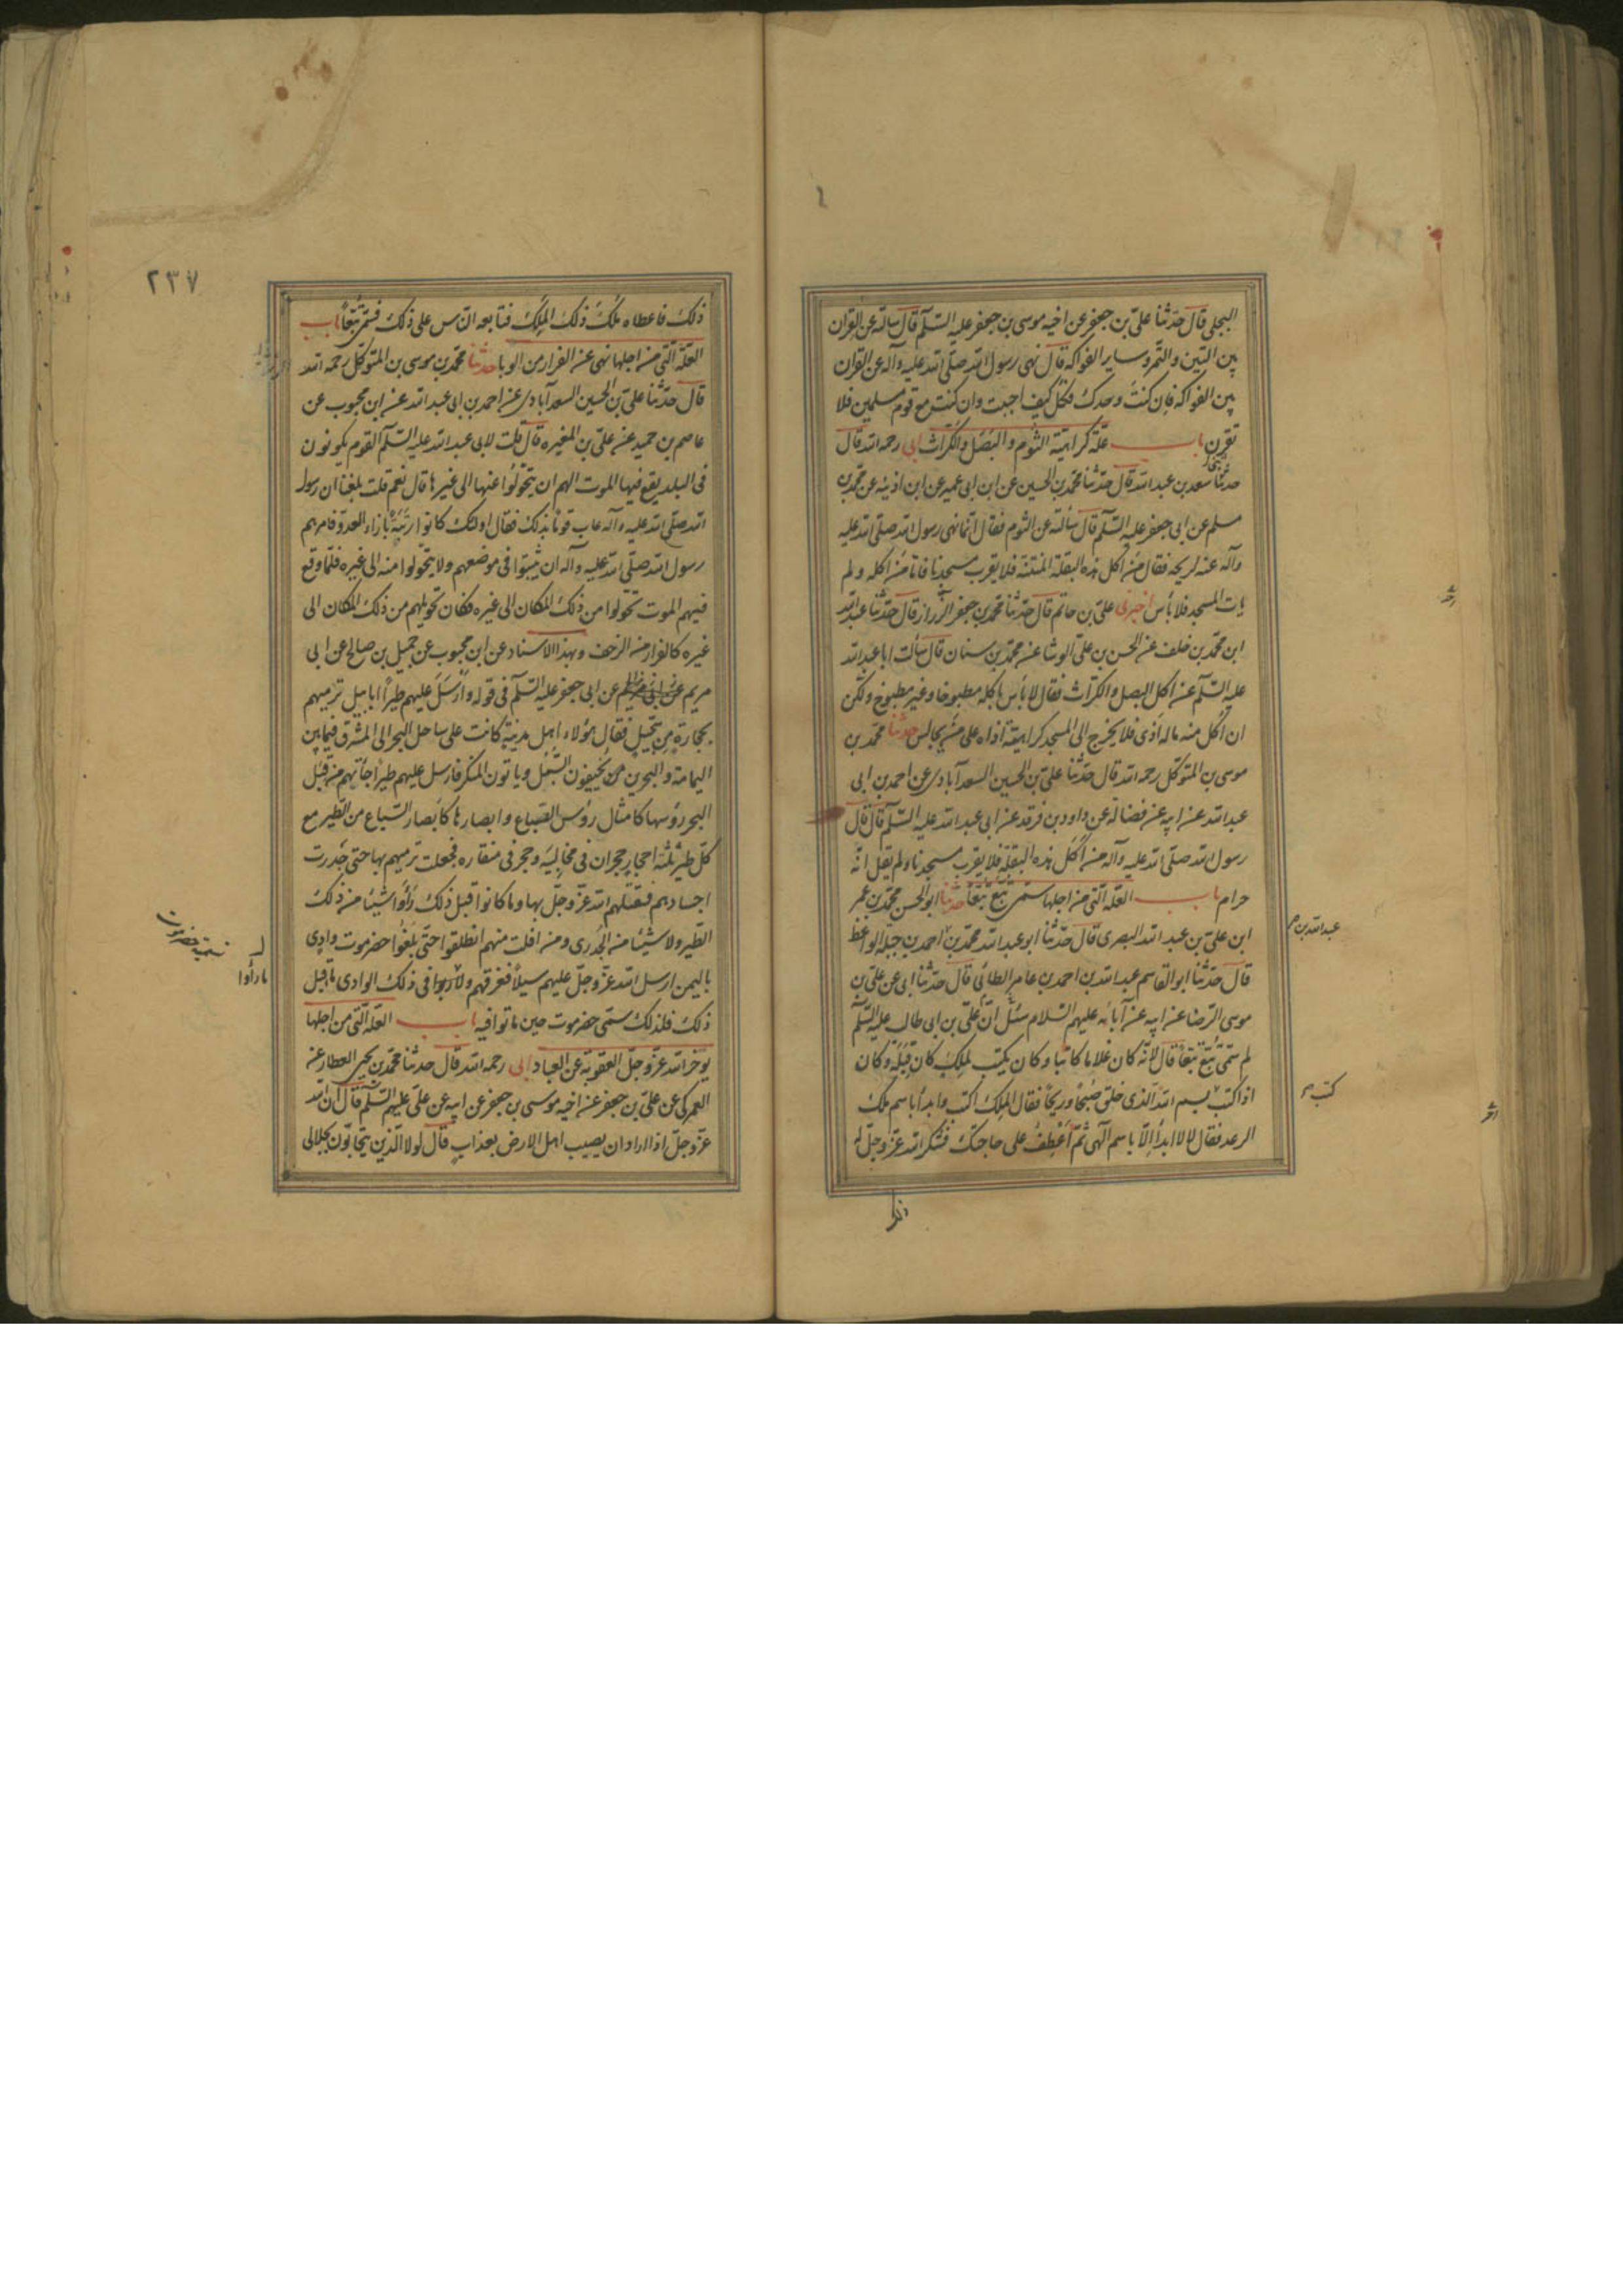 البجلى قال حدّثنا علىّ بن جعفر عن اخيه موسى بن جعفر عليه السّلم قال سالته عن القران
بين التين والتّمر وساير الفواكه قال نهى رسول الله صلّى الله عليه وآله عن القران
بين الفواكه فان كنت وحدك فكل كيف احببت وان كنت مع قوم مسلمين فلا
تقرن باب علّة كراهيّة الثوم والبصل والكرّاث ابى رحمه الله قال
حدثنا سعد بن عبد الله قال حدّثنا محمّد بن الحسين عن ابن ابى عمير عن ابن اذينه عن محمّد بن
مسلم عن ابى جعفر عليه السّلم قال سألته عن الثوم فقال انّما نهى رسول الله صلّى الله عليه
وآله عنه لريحه فقال من اكل هذه البقلة المنتنة فلا يقرب مسجدنا فاما من اكله ولم
يات المسجد فلا بأس اخبرنى علىّ بن حاتم قال حدّثنا محمّد بن جعفر الرّزاز قال حدّثنا عبد الله
ابن محمّد بن خلف عن الحسن بن علىّ الوشا عن محمّد بن سنان قال سألت ابا عبد الله
عليه السّلم عن اكل البصل والكرّاث فقال لا بأس باكله مطبوخا وغير مطبوخ ولكن
ان اكل منه ما له اذى فلا يخرج الى المسجد كراهيّة اذاه على من يجالس حدثنا محمّد بن
موسى بن المتوكّل رحمه الله قال حدّثنا علىّ بن الحسين السعد آبادى عن احمد بن ابى
عبد الله عن ابيه عن فضالة عن داود بن فرقد عن ابى عبد الله عليه السّلم قال قال
رسول الله صلّى الله عليه وآله من اكل هذه البقلة فلا يقرب مسجدنا ولم يقل انّه
حرام باب العلّة الّتى من اجلها سمّى تبّع تبّعا حدثنا ابو الحسن محمّد بن عمر
ابن علىّ بن عبد الله البصرى قال حدّثنا ابو عبد الله محمّد بن احمد بن جبله الواعظ
عبد الله بن
قال حدّثنا ابو القاسم عبد الله بن احمد بن عامر الطائى قال حدّثنا ابى عن علىّ بن
موسى الرّضا عن ابيه عن آبائه عليهم السّلام سئل انّ علىّ بن ابى طالب عليه السّلم
لم سمّى تبّع تبّعا قال لانّه كان غلاما كاتبا وكان يكتب لملك كان قبله وكان
اذا كتب بسم الله الّذى خلق صبحا وريحا فقال الملك اكتب وابدأ باسم ملك
كتب
الرعد فقال لا لا ابدأ الّا باسم الهى ثمّ اعطف على حاجتك فشكر الله عزّ وجلّ له
ذلك
٢٣٧
ذلك فاعطاه ملك ذلك الملك فتابعه النّاس على ذلك فسمّى تبّعا باب
العلّة الّتى من اجلها نهى عن الفرار من الوبا حدثنا محمّد بن موسى بن المتوكّل رحمه الله
قال حدّثنا علىّ بن الحسين السعد آبادى عن احمد بن ابى عبد الله عن ابن محبوب عن
عاصم بن حميد عن علىّ بن المغيره قال قلت لابى عبد الله عليه السّلم القوم يكونون
فى البلد يقع فيها الموت الهم ان يتحوّلوا عنها الى غيرها قال نعم قلت بلغنا ان رسول
الله صلّى الله عليه وآله عاب قوما بذلك فقال اولئك كانوا رتبة بازاء العدوّ فامرهم
رسول الله صلّى الله عليه وآله ان يثبتوا فى موضعهم ولا يتحوّلوا منه الى غيره فلمّا وقع
فيهم الموت تحوّلوا من ذلك المكان الى غيره فكان تحويلهم من ذلك المكان الى
غيره كالفرار من الزحف وبهذا الاسناد عن ابن محبوب عن جميل بن صالح عن ابى
مريم عن ابى جعفر عليه السّلم فى قوله وارسل عليهم طيرا ابابيل ترميهم
بحجارة من سجّيل فقال هؤلاء اهل مدينة كانت على ساحل البحر الى المشرق فيما بين
اليمامة والبحرين يخيفون السّبل وياتون المنكر فارسل عليهم طيرا جاءتهم من قبل
البحر رؤسها كامثال رؤس السّباع وابصارها كابصار السّباع من الطّير مع
كلّ طير ثلثة احجار حجران فى مخاليبه وحجر فى منقاره فجعلت ترميهم بها حتى جدرت
اجسادهم فقتلهم الله عزّ وجلّ بها وما كانوا قبل ذلك رأوا شيئا من ذلك
الطّير ولا شيئا من الجدرى ومن افلت منهم انطلقوا حتّى بلغوا حضرموت وادى
باليمن ارسل الله عزّ وجلّ عليهم سيلا فغرقهم ولا رأوا فى ذلك الوادى ماء قبل
ما رأوا
ذلك فلذلك سمّى حضرموت حين ماتوا فيه باب العلّة الّتى من اجلها
يؤخر الله عزّ وجلّ العقوبة عن العباد ابى رحمه الله قال حدثنا محمّد بن يحيى العطار عن
العمركى عن علىّ بن جعفر عن اخيه موسى بن جعفر عن ابيه عن علىّ عليهم السّلم قال انّ الله
عزّ وجلّ اذا اراد ان يصيب اهل الارض بعذاب قال لولا الّذين يتحابّون بجلالى